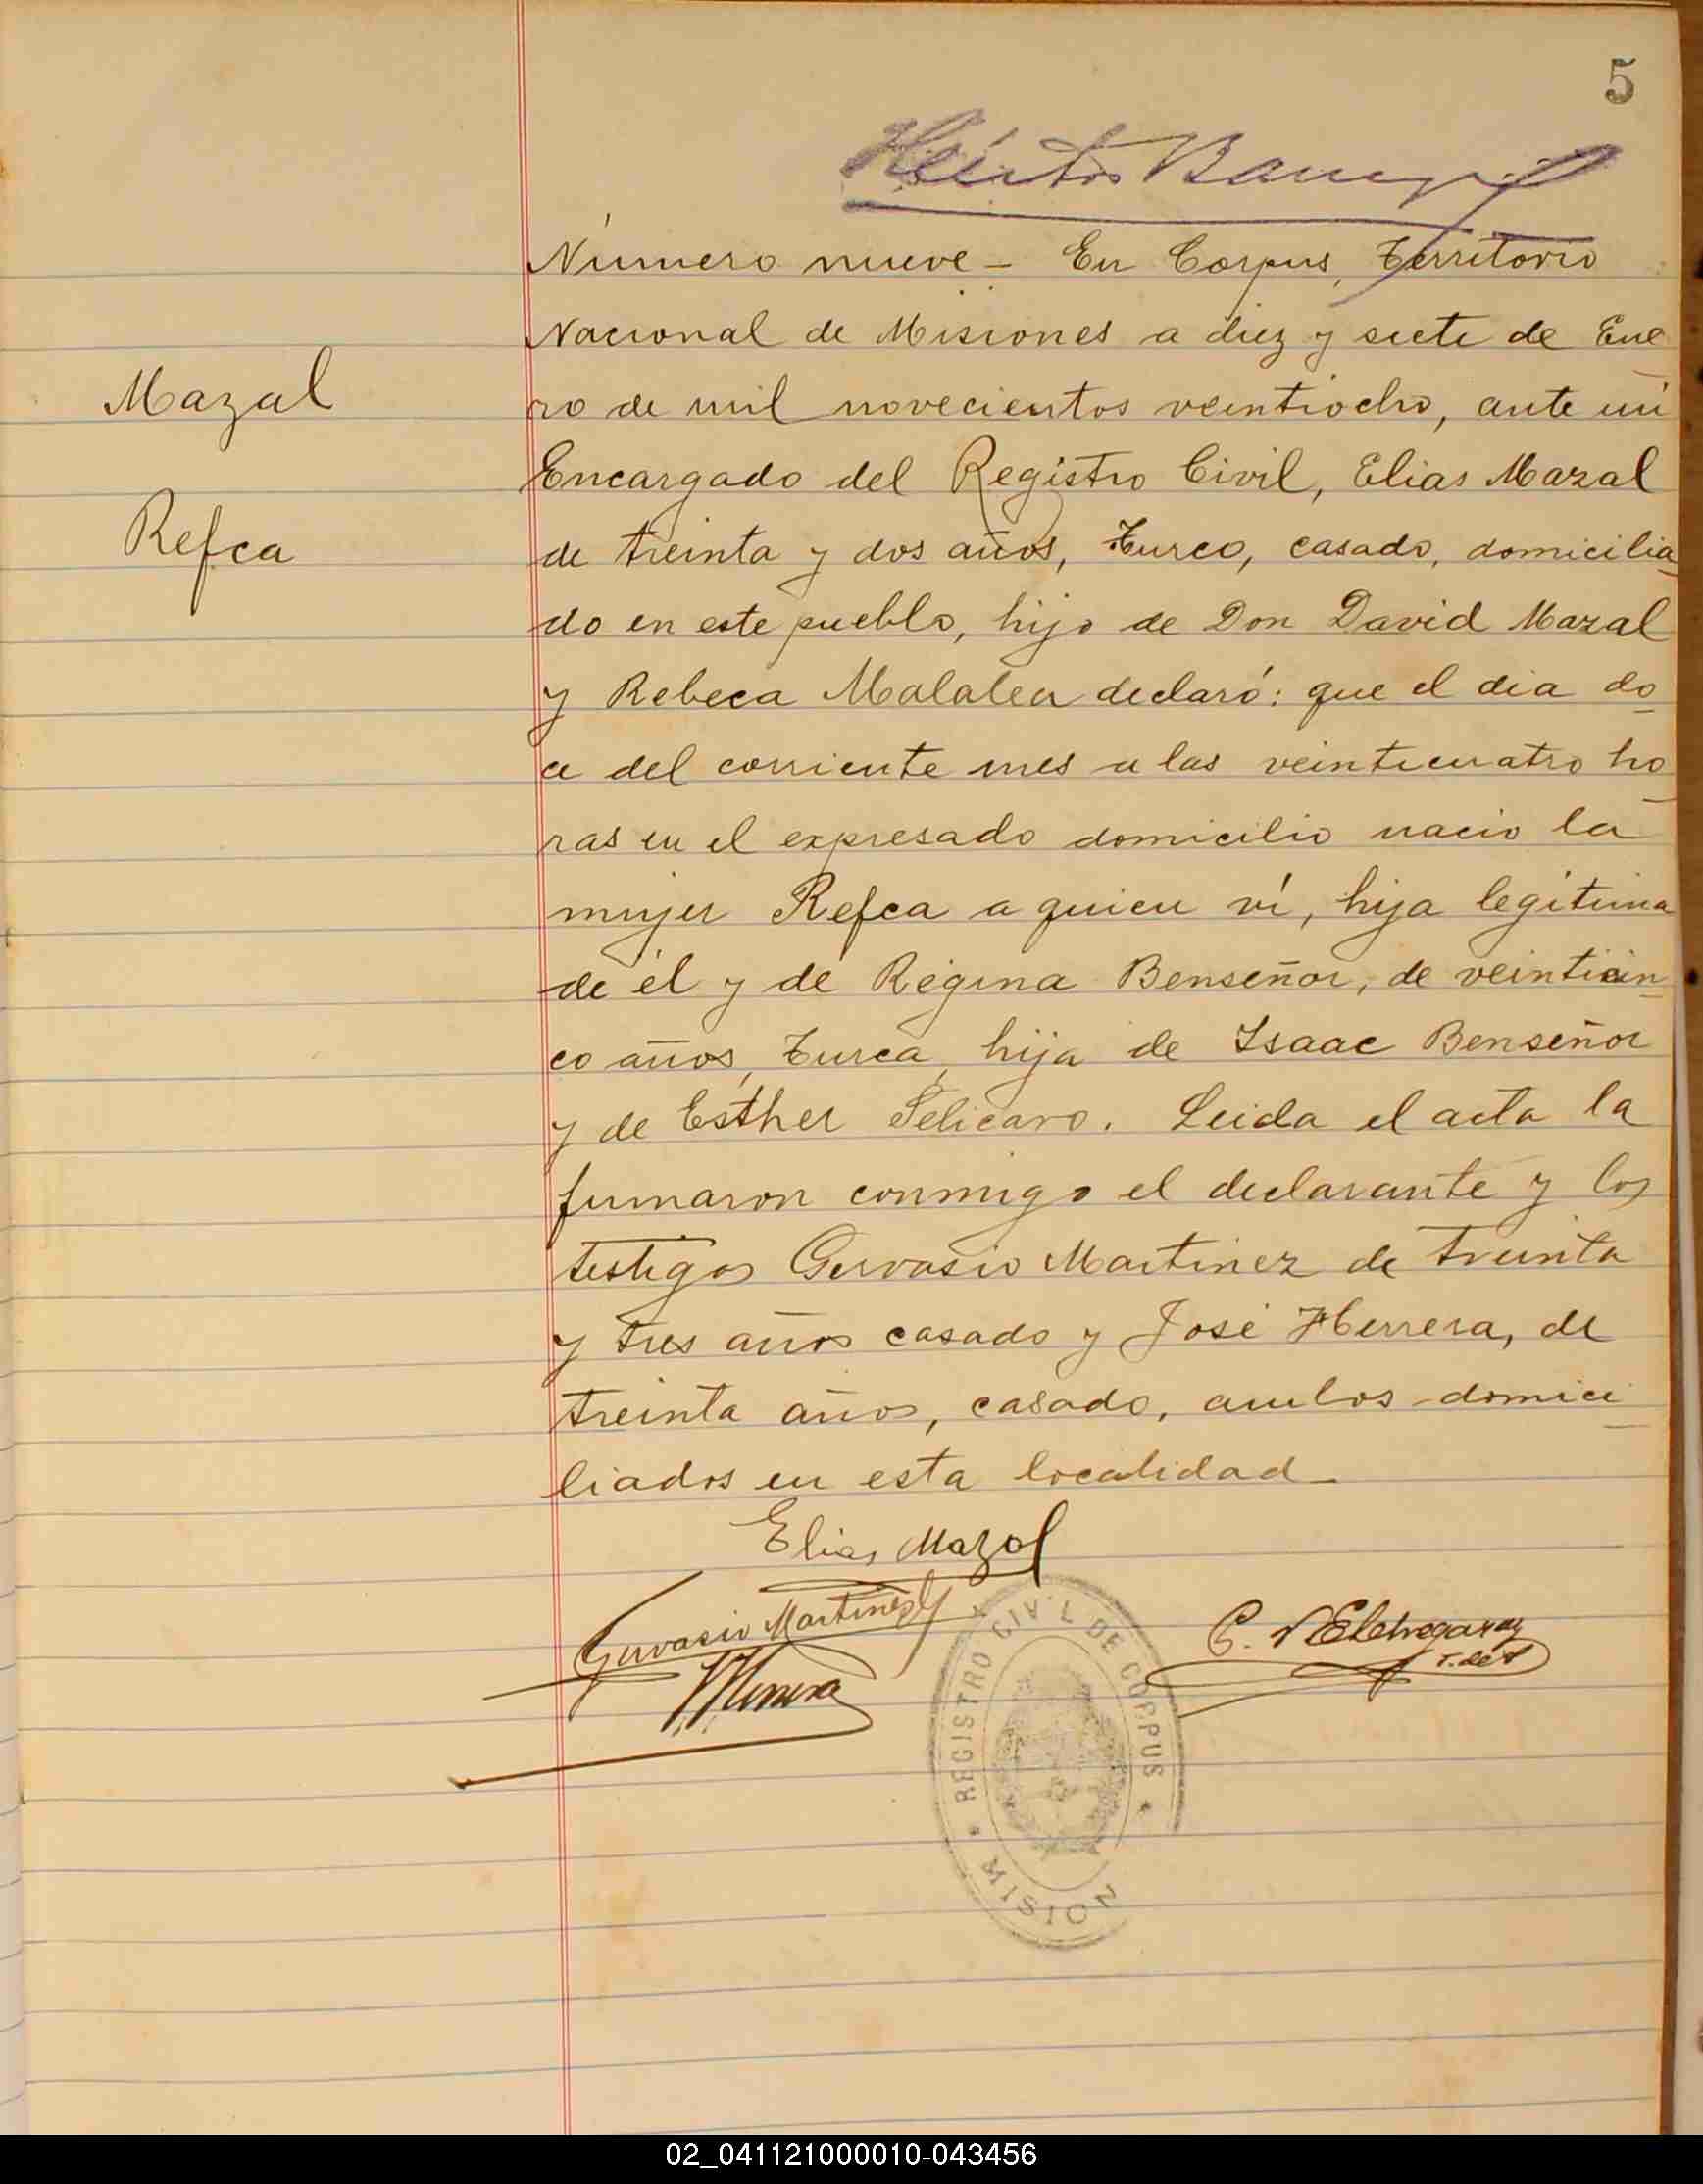 5
Número nueve - En Corpus, Territorio
Nacional de Misiones a diez y siete de Ene
Mazal
ro de mil novecientos veintiocho, ante mi
Encargado del Registro Civil, Elias Mazal
Refca
de treinta y dos años, Turco, casado, domicilia
do en este pueblo, hijo de Don David Mazal
y Rebeca Malatea declaró: que el dia do
ce del corriente mes a las veinticuatro ho
ras en el expresado domicilio nacio la
mujer Refca a quien ví, hija legítima
de él y de Regina Benseñor, de veinticin
co años, Turca, hija de Isaac Benseñor
y de Esther Pelicaro. Leida el acta la
firmaron conmigo el declarante y los
testigos Gervasio Martinez de treinta
y tres años casado y José Herrera, de
treinta años, casado, ambos domici
liados en esta localidad -
Elias Mazal
Gervasio Martinez
Herrera
REGISTRO CIVIL DE CORPUS
MISION
02_041121000010-043456